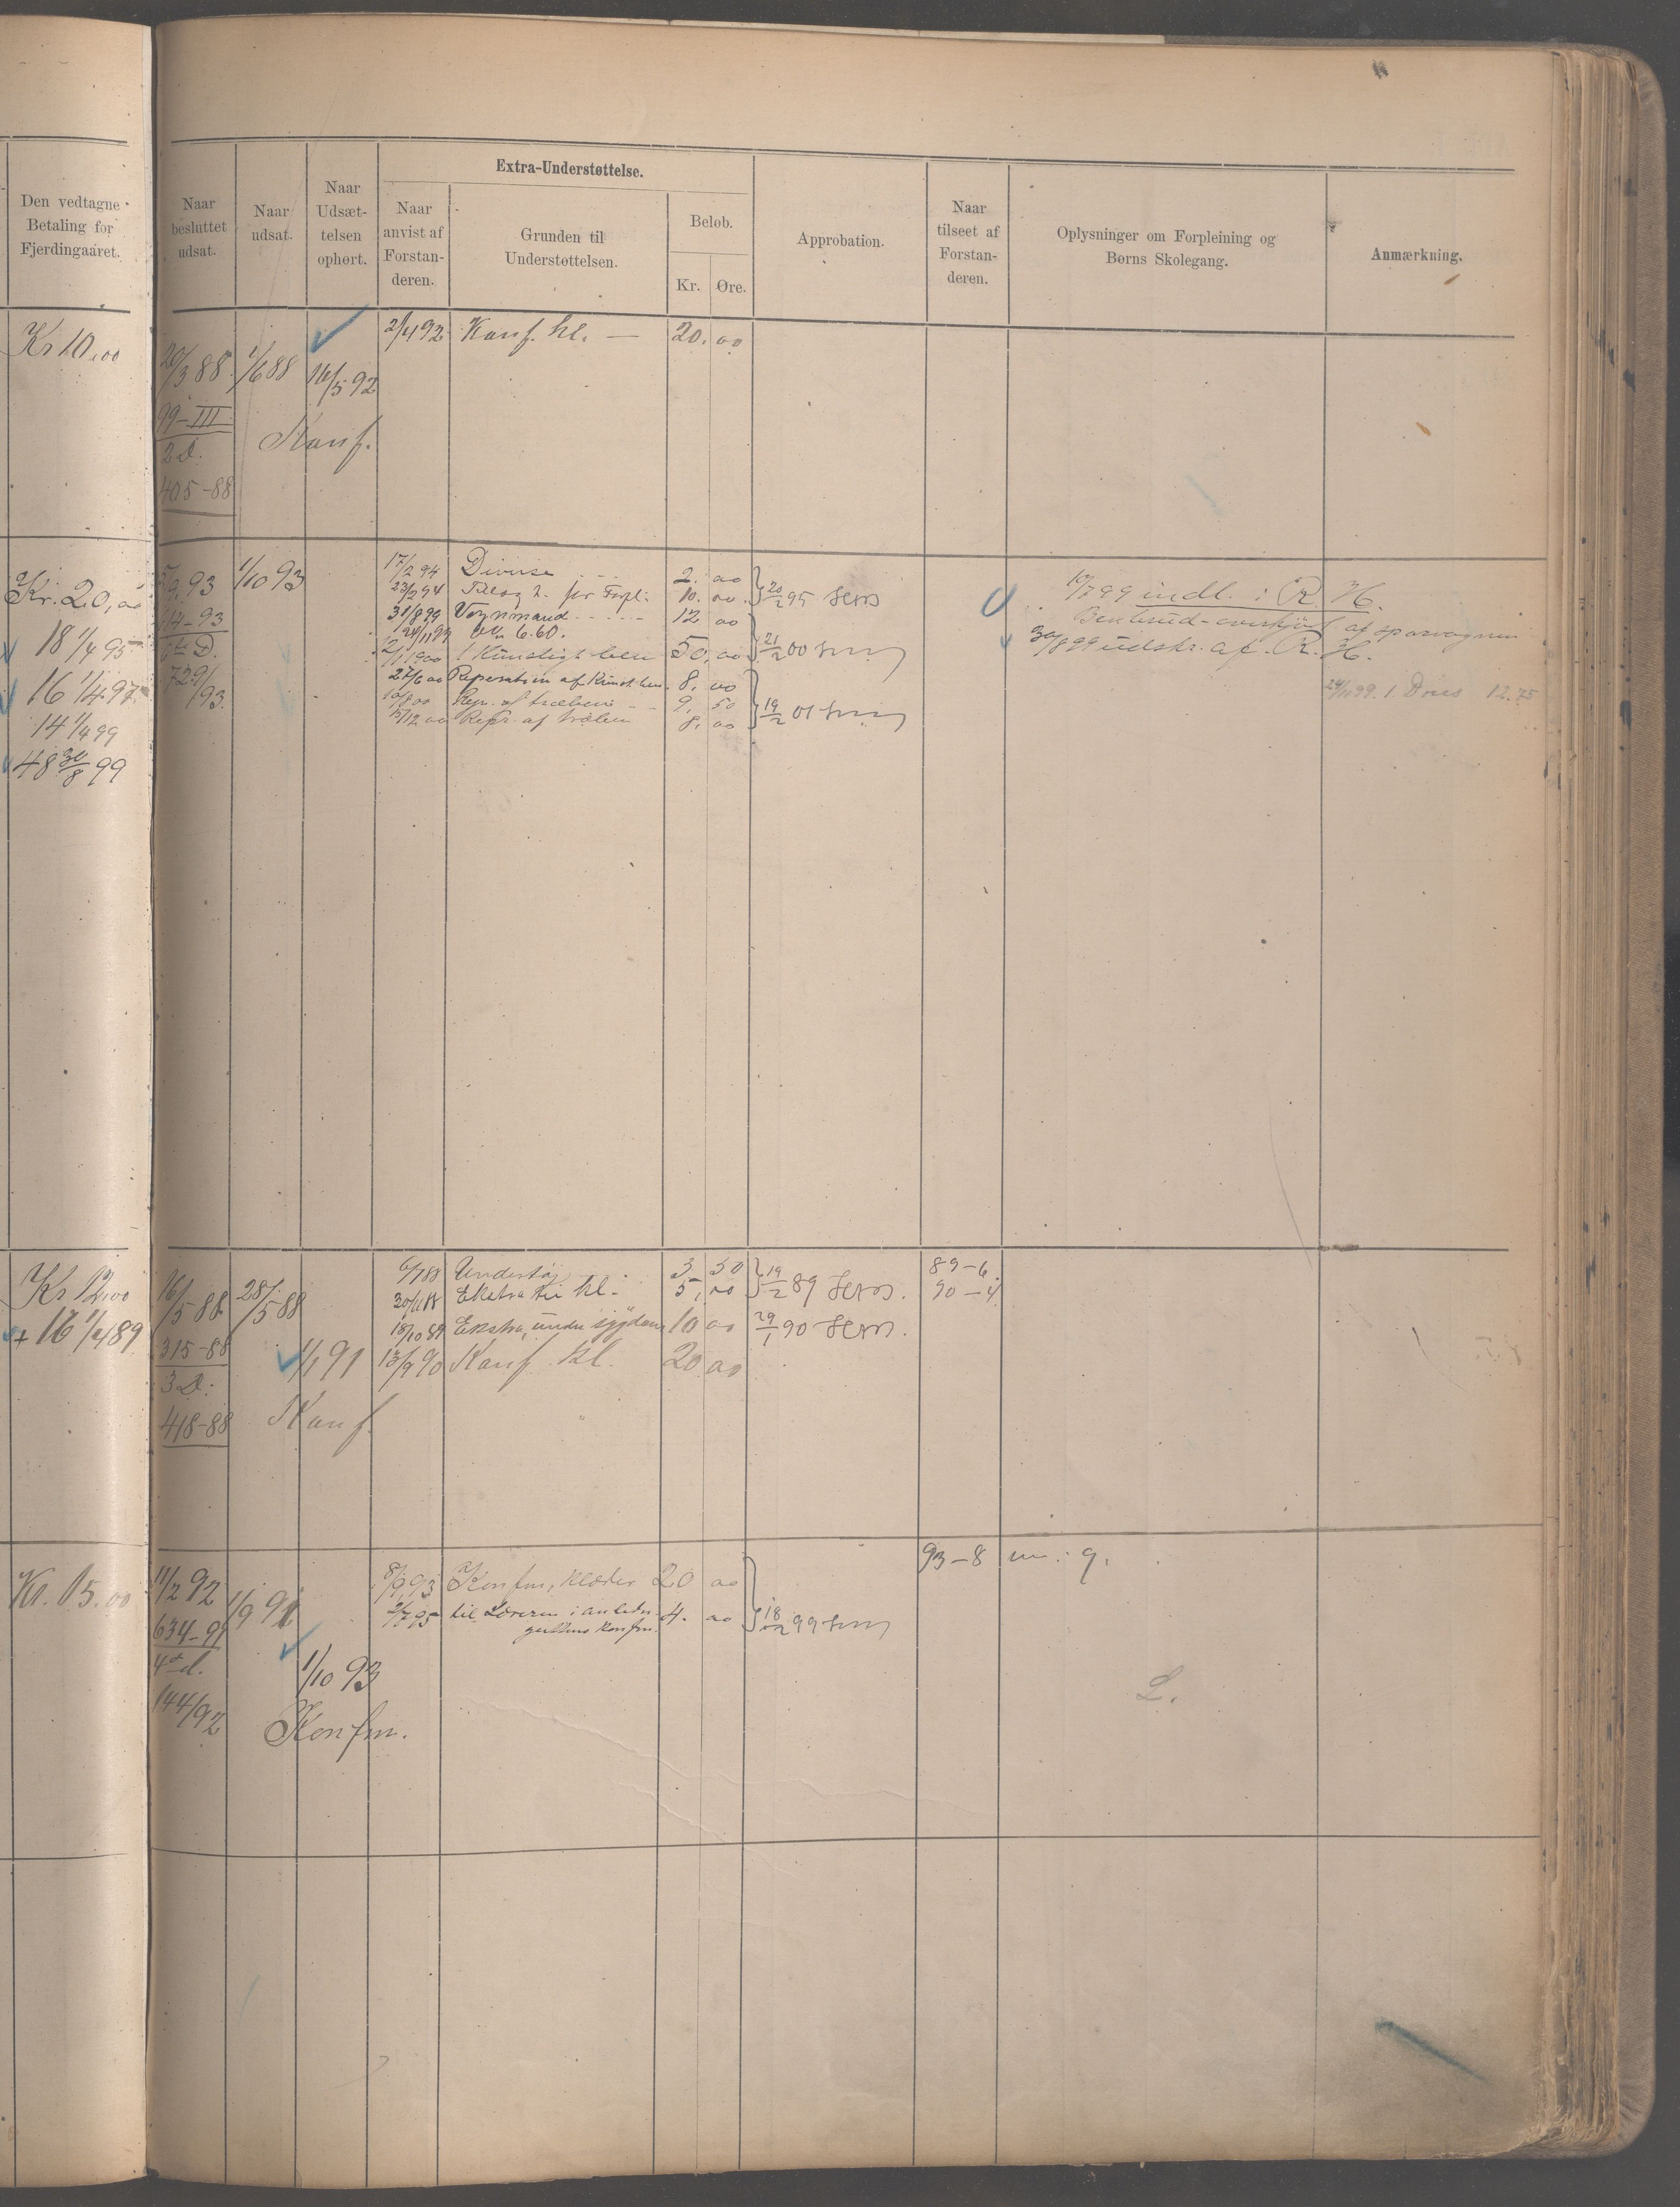 Den vedtagne
Betaling for
Fjerdingaaret.
Naar
besluttet
udsat.
Naar
udsat.
Naar
Udsæt-
telsen
ophørt.
Extra-Understøttelse.
Naar
anvist af
Forstan-
deren.
Grunden til
Understøttelsen.
Beløb.
Kr.
Øre.
Approbation.
Naar
tilseet af
Forstan-
deren.
Oplysninger om Forpleining og
Børns Skolegang.
Anmærkning.
Kr 10,00
20/3 88 1/6 88 16/5 92
99-III
2 D.
405-88
Konf.
2/4 92 Konf. kl. — 20. 00
Kr. 20,00
18 1/4 95
16 1/4 97
14 1/4 99
48 30/8 99
93 1/10 93
14-93
D.
729/93.
17/2 94 Diverse 2. 00
23/2 94 Tillæg for Forpl. 10. 00 20/2 95
31/8 99 Vognmand 12 00
24/11 99 6.60.
1900 1 Kunstigt ben 50,00 21/2 00
27/6 00 Reperation af Kunst. ben 8. 00
10/8 00 Rep. af træben 9. 50 19/2 01
15/12 00 Repr. af træben 8. 00
10/7 99 indl. i R. H.
Benbrud-overkjørt af sporvognen
30/8 99 udskr. af R. H.
24/11 99. 1 Dres 12.75
Kr 12,00
+ 16 1/4 89
16/5 88 28/5 88
315-88
3 D.
418-88
1/1 91
Konf.
6/7 88 Undertøj 3 50
30/11 88 Ekstra til kl. 5, 00 19/2 89
18/10 89 Ekstra under sygdom 10 00 29/1 90
13/9 90 Konf. kl. 20 00
89-6.
90-4
Kr. 15.00
11/2 92
1/9 91
634-91
4de d.
144/92
1/10 93
Konfm.
8/9 93 Konfm. klæder 20 00
2/7 95 til Læreren i anledn. 4. 00
guttens konfm.
18/2 99
93-8 m. 9.
L.